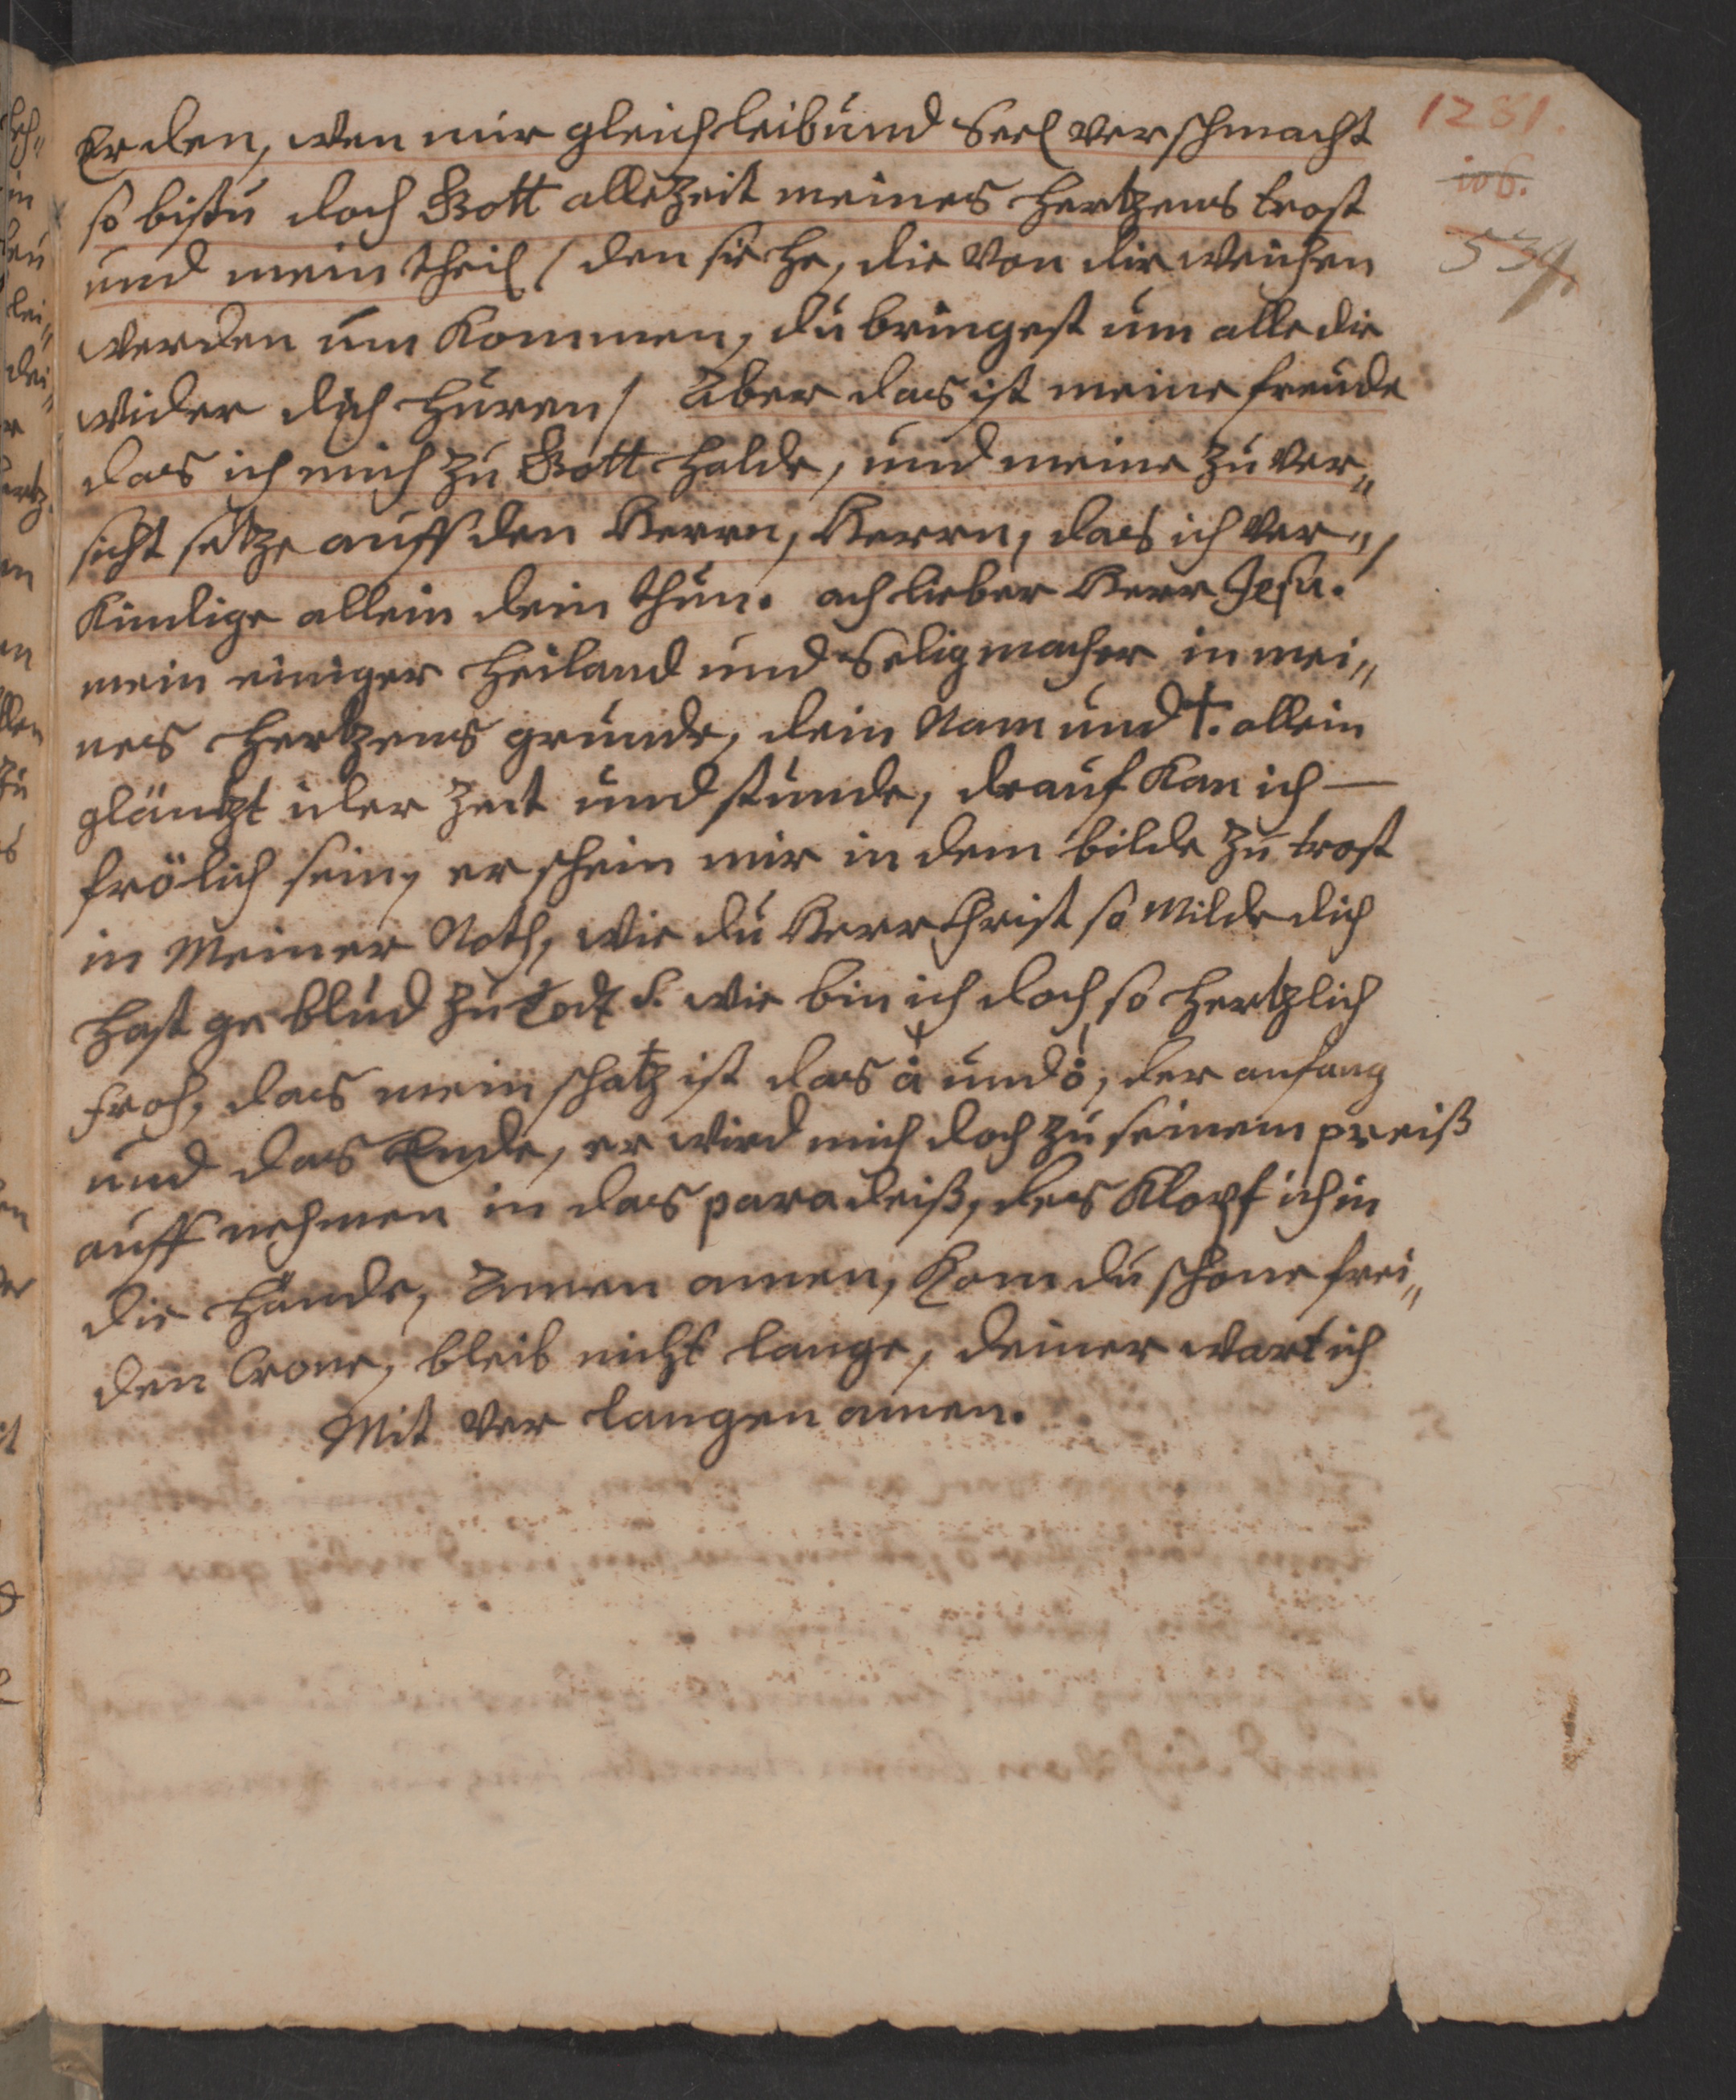 1281.
106.
539.
Erden, wen mir gleich leib und Seel verschmacht
so bistu doch Gott allezeit meines Hertzens trost
und mein theil / den siehe, die von dir weichen
werden um kommen, du bringest um alle die
wider dich huren / Aber das ist meine freude
das ich mich zu Gott halde, und meine zu ver„
sicht setze auff den Herrn, Herrn, das ich ver„
kindige allein dein thun. ach lieber Herr Jesu.
mein einiger Heiland und Seligmacher in mei„
nes Hertzens grunde, dein Nam und †. allein
gläntzt icler Zeit und stunde, drauf kan ich —
frölich sein, er schein mir in dem bilde zu trost
in Meiner Noth, wie du Herr Christ so Milde dich
hast ge blud zu todt. wie bin ich doch so hertzlich
froh, das mein schatz ist das a und o, der anfang
und das Ende, er wird mich doch zu seinem preiß
auff nehmen in das paradeiß, des klopf ich in
die hände, Amen amen, kom du schöne frei„
den Crone, bleib nicht lange, deiner wart ich
Mit ver langen amen.